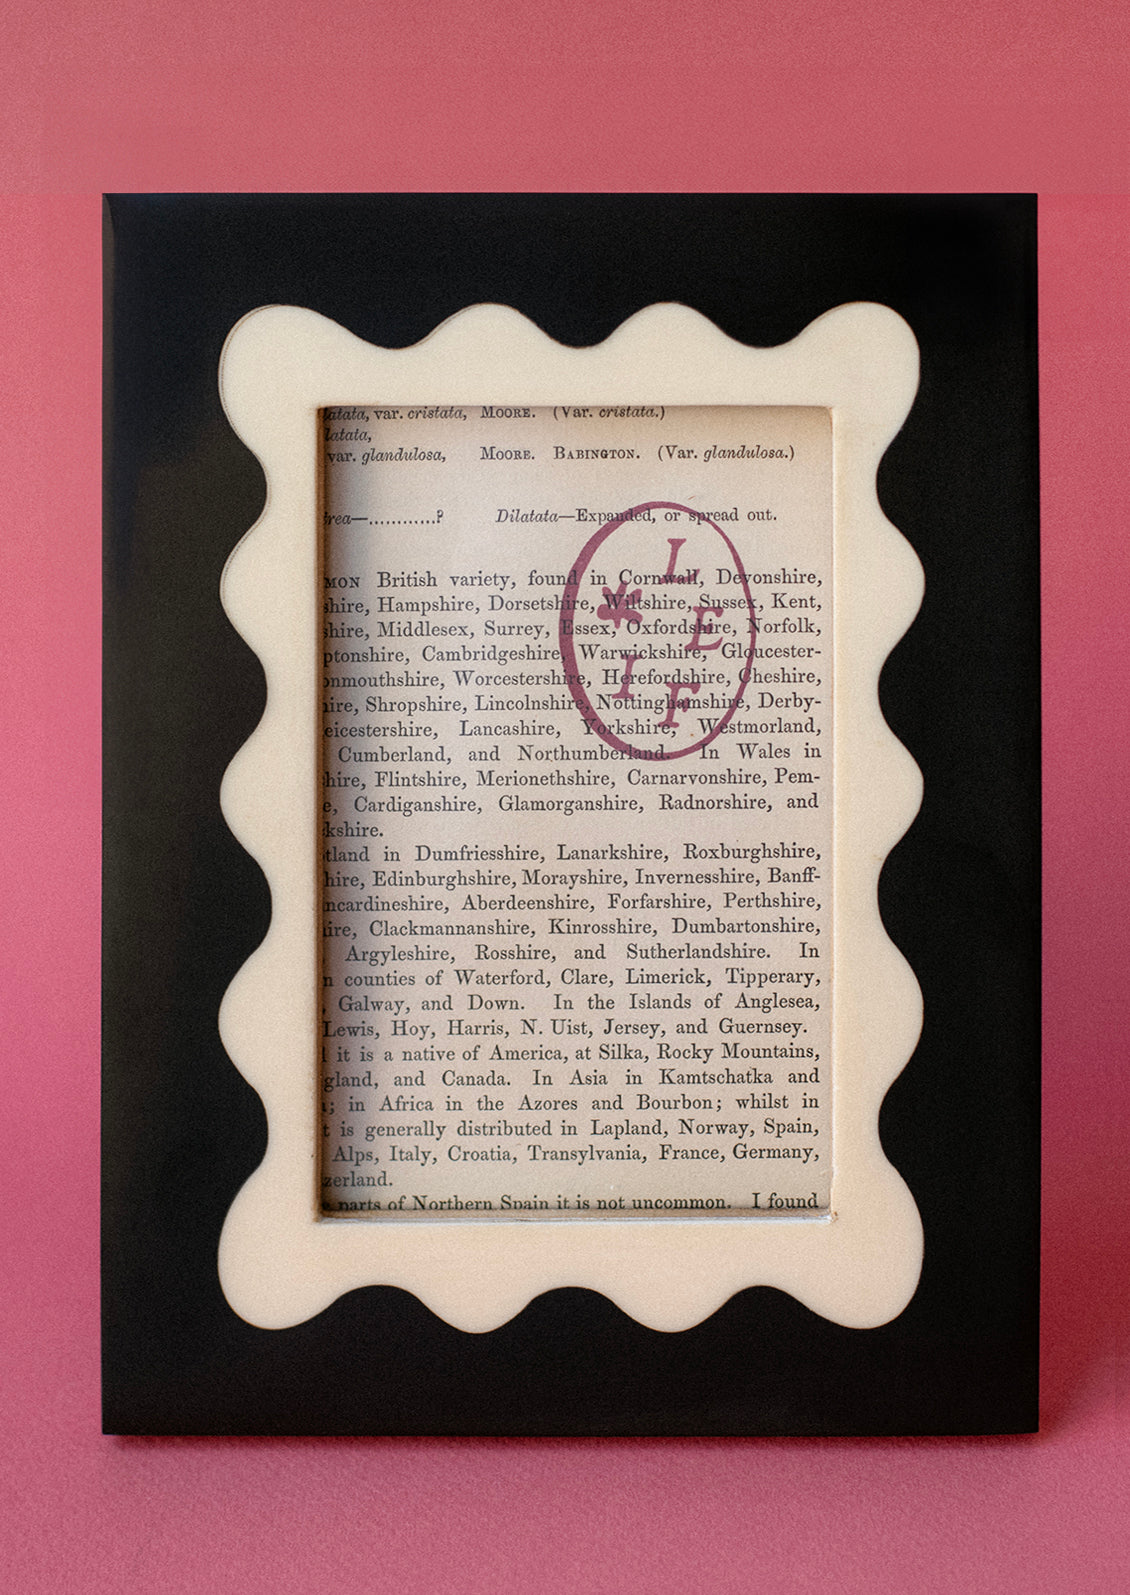 latata, var. cristata, MOORE. (Var. cristata.)
latata,
var. glandulosa, MOORE. BABINGTON. (Var. glandulosa.)
rea—............? Dilatata—Expanded, or spread out.
MON British variety, found in Cornwall, Devonshire,
shire, Hampshire, Dorsetshire, Wiltshire, Sussex, Kent,
shire, Middlesex, Surrey, Essex, Oxfordshire, Norfolk,
ptonshire, Cambridgeshire, Warwickshire, Gloucester-
onmouthshire, Worcestershire, Herefordshire, Cheshire,
ire, Shropshire, Lincolnshire, Nottinghamshire, Derby-
eicestershire, Lancashire, Yorkshire, Westmorland,
Cumberland, and Northumberland. In Wales in
hire, Flintshire, Merionethshire, Carnarvonshire, Pem-
e, Cardiganshire, Glamorganshire, Radnorshire, and
kshire.
tland in Dumfriesshire, Lanarkshire, Roxburghshire,
hire, Edinburghshire, Morayshire, Invernesshire, Banff-
ncardineshire, Aberdeenshire, Forfarshire, Perthshire,
ire, Clackmannanshire, Kinrosshire, Dumbartonshire,
Argyleshire, Rosshire, and Sutherlandshire. In
n counties of Waterford, Clare, Limerick, Tipperary,
, Galway, and Down. In the Islands of Anglesea,
Lewis, Hoy, Harris, N. Uist, Jersey, and Guernsey.
it is a native of America, at Silka, Rocky Mountains,
gland, and Canada. In Asia in Kamtschatka and
; in Africa in the Azores and Bourbon; whilst in
t is generally distributed in Lapland, Norway, Spain,
Alps, Italy, Croatia, Transylvania, France, Germany,
zerland.
parts of Northern Spain it is not uncommon. I found
L
E
I
F